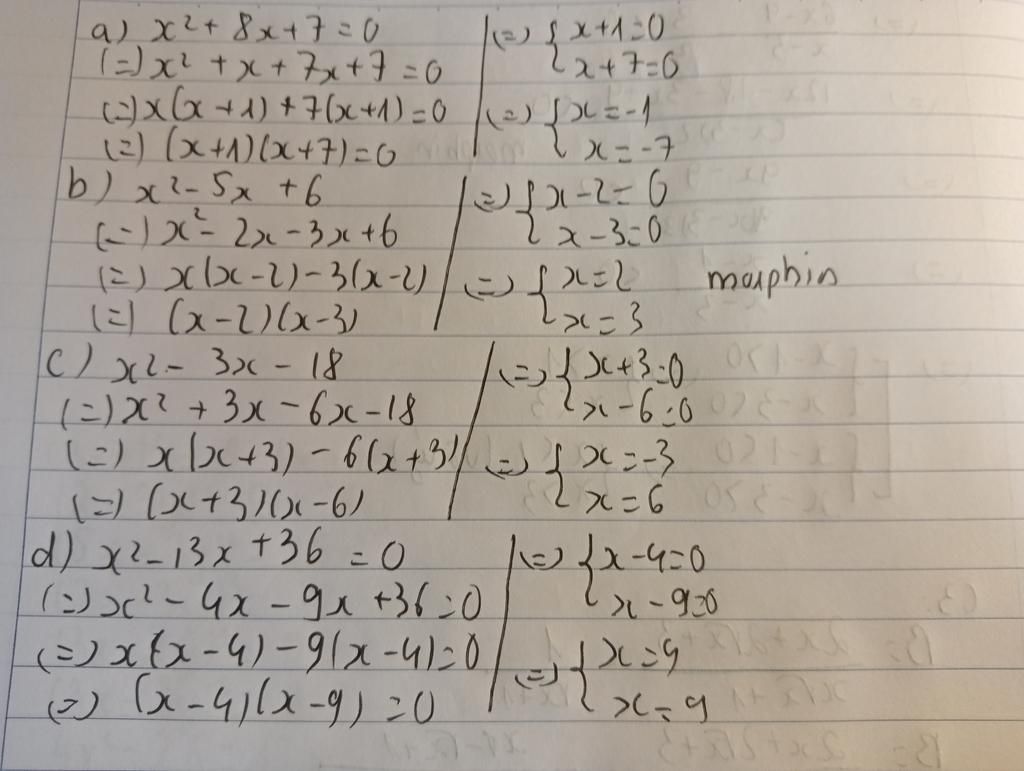 a) x² + 8x + 7 = 0
(=) x² + x + 7x + 7 = 0
(=) x(x + 1) + 7(x + 1) = 0
(=) (x + 1)(x + 7) = 0
(=) { x + 1 = 0
x + 7 = 0
(=) { x = -1
x = -7
b) x² - 5x + 6
(=) x² - 2x - 3x + 6
(=) x(x - 2) - 3(x - 2)
(=) (x - 2)(x - 3)
(=) { x - 2 = 0
x - 3 = 0
(=) { x = 2
x = 3
morphin
c) x² - 3x - 18
(=) x² + 3x - 6x - 18
(=) x(x + 3) - 6(x + 3)
(=) (x + 3)(x - 6)
(=) { x + 3 = 0
x - 6 = 0
(=) { x = -3
x = 6
d) x² - 13x + 36 = 0
(=) x² - 4x - 9x + 36 = 0
(=) x(x - 4) - 9(x - 4) = 0
(=) (x - 4)(x - 9) = 0
(=) { x - 4 = 0
x - 9 = 0
(=) { x = 4
x = 9